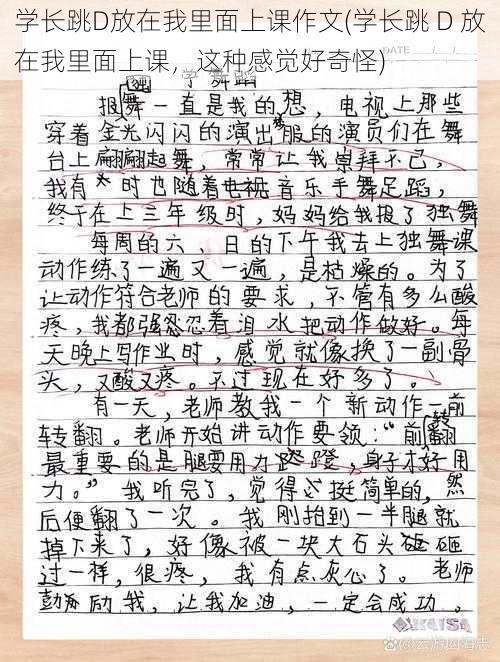 学长跳D放在我里面上课作文(学长跳 D 放
在我里面上课，这种感觉好奇怪)
DATE
学舞蹈
报舞一直是我的梦想，电视上那些
穿着金光闪闪的演出服的演员们在舞
台上翩翩起舞，常常让我崇拜不已，
我有时也随着电视音乐手舞足蹈，
终于在上三年级时，妈妈给我报了独舞
每周的六、日的下午我去上独舞课
动作练了一遍又一遍，是枯燥的。为了
让动作符合老师的要求，不管有多么酸
疼，我都强忍忍着泪水把动作做好。每
天晚上写作业时，感觉就像换了一副骨
头，又酸又疼。不过现在好多了。
有一天，老师教我一个新动作—前
转翻。老师开始讲动作要领："前转翻
最重要的是腿要用力蹬，身子才好用
力。"我听完了，觉得这挺简单的，然
后便翻了一次。我刚抬到一半腿就
掉下来了，好像被一块大石头砸
过一样，很疼，我有点灰心了。老师
鼓励我，让我加油，一定会成功。